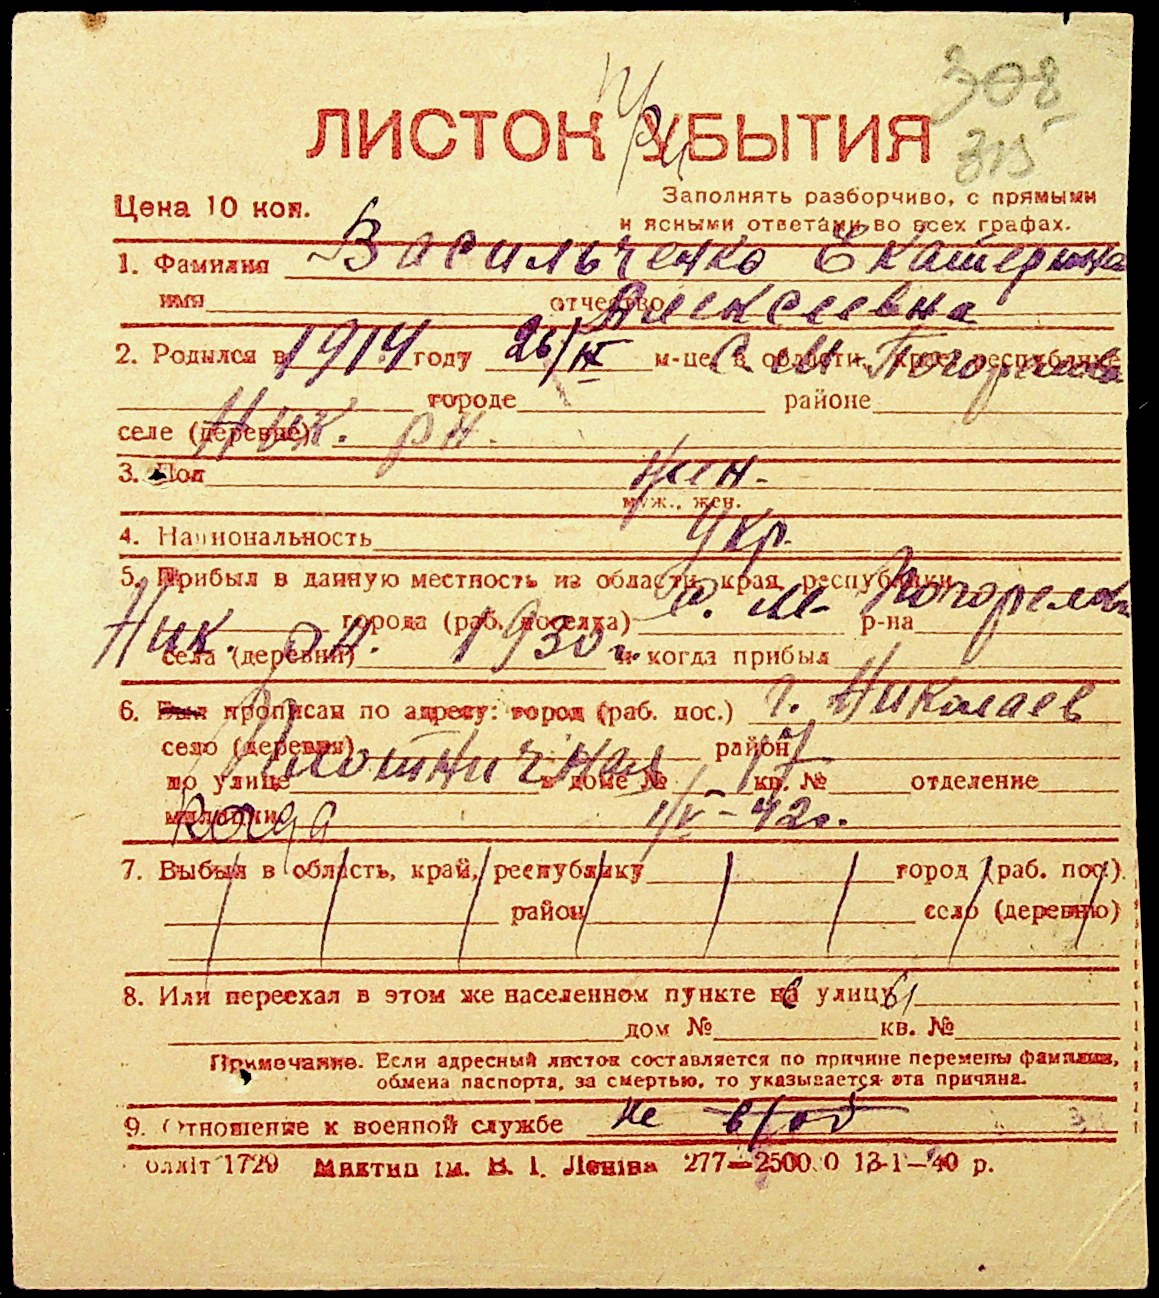 308
315
При
ЛИСТОК УБЫТИЯ
Цена 10 коп.
Заполнять разборчиво, с прямыми
и ясными ответами во всех графах.
1. Фамилия Васильченко Екатерина
имя отчество Алексеевна
2. Родился в 1914 году 26/IV м-це, в области, крае, республике С. М Погорелово
городе районе
селе (деревне) Ник. рн.
3. Пол жен.
муж., жен.
4. Национальность Укр.
5. Прибыл в данную местность из области, края, республики
С. М. Погорелово
Ник. рн. города (раб. поселка) р-на
села (деревни) 1930 г. и когда прибыл
6. Был прописан по адресу: город (раб. пос.) г. Николаев
село (деревня) район
по улице Плотничная в доме № 17 кв. № отделение
милиции когда 1/V-42г.
7. Выбыл в область, край, республику город (раб. пос.)
район село (деревню)
8. Или переехал в этом же населенном пункте на улицу
дом № кв. №
Примечание. Если адресный листок составляется по причине перемены фамилии,
обмена паспорта, за смертью, то указывается эта причина.
9. Отношение к военной службе не в/об
блліт 1729 Миктип ім. В. І. Леніна 277—2500.0 13-1—40 р.